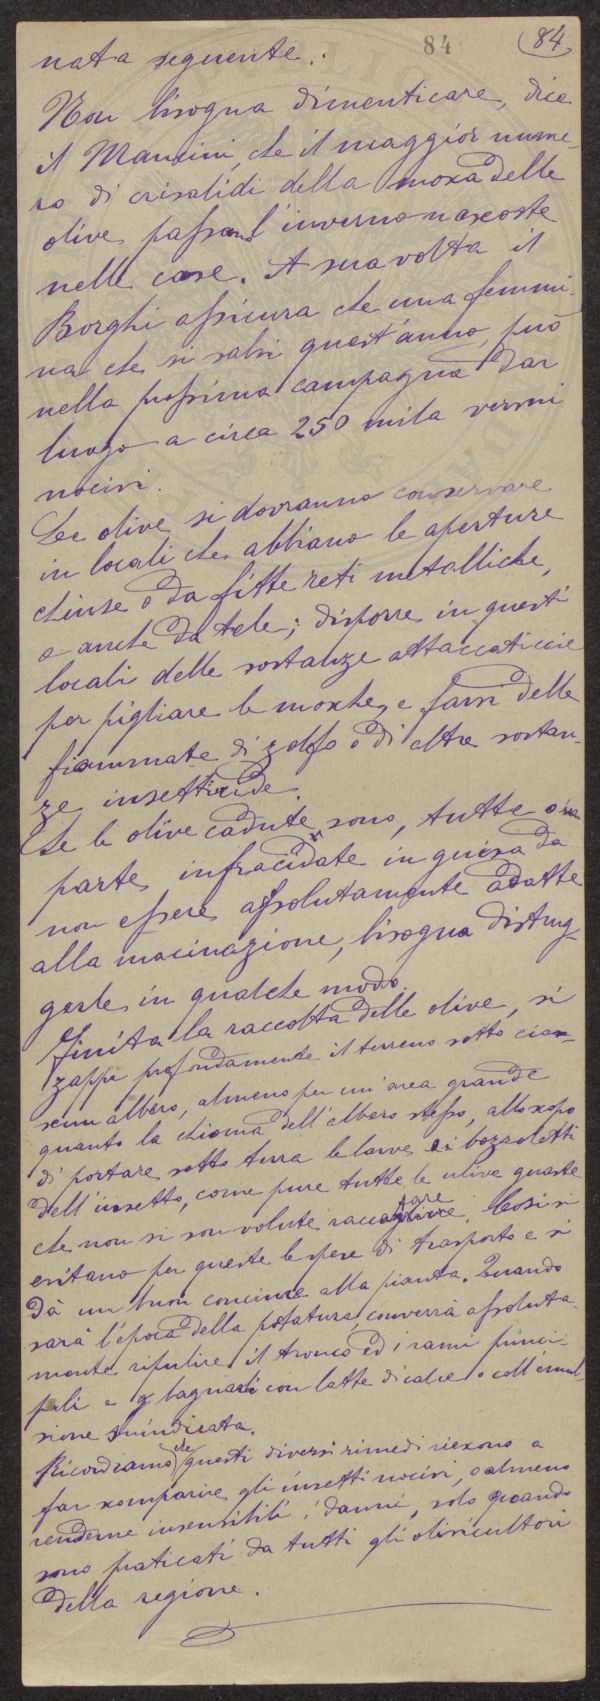 84 84
nata seguente.
Non bisogna dimenticare, dice
il Mancini, che il maggior nume-
ro di crisalidi della mosca delle
olive passano l'inverno nascoste
nelle case. A sua volta il
Borghi assicura che una femmi-
na che si salvi quest'anno, può
nella prossima campagna dar
luogo a circa 250 mila vermi
nocivi.
Le olive si dovranno conservare
in locali che abbiano le aperture
chiuse o da fitte reti metalliche,
o anche da tele; disporre in questi
locali delle sostanze attaccaticcie
per pigliare le mosche, e farvi delle
fiammate di zolfo o di altre sostan-
ze insetticide.
Se le olive cadute sono, tutte o in
parte infracidate in guisa da
non essere assolutamente adatte
alla macinazione, bisogna distrug-
gerle in qualche modo.
Finita la raccolta delle olive, si
zappi profondamente il terreno sotto cia-
scun albero, almeno per un'area grande
quanto la chioma dell'albero stesso, allo scopo
di portare sotto terra le larve ei bozzoletti
dell'insetto, come pure tutte le ulive guaste
che non si son volute raccogliere. Così si
evitano per queste le spese di trasporto e si
dà un buon concime alla pianta. Quando
sarà l'epoca della potatura, converrà assoluta-
mente ripulire il tronco ed i rami princi-
pali e bagnarli con latte di calce o coll'emul-
sione suindicata.
Ricordiamo che questi diversi rimedi riescono a
far scomparire gli insetti nocivi, o almeno
renderne insensibili i danni, solo quando
sono praticati da tutti gli olivicultori
della regione.